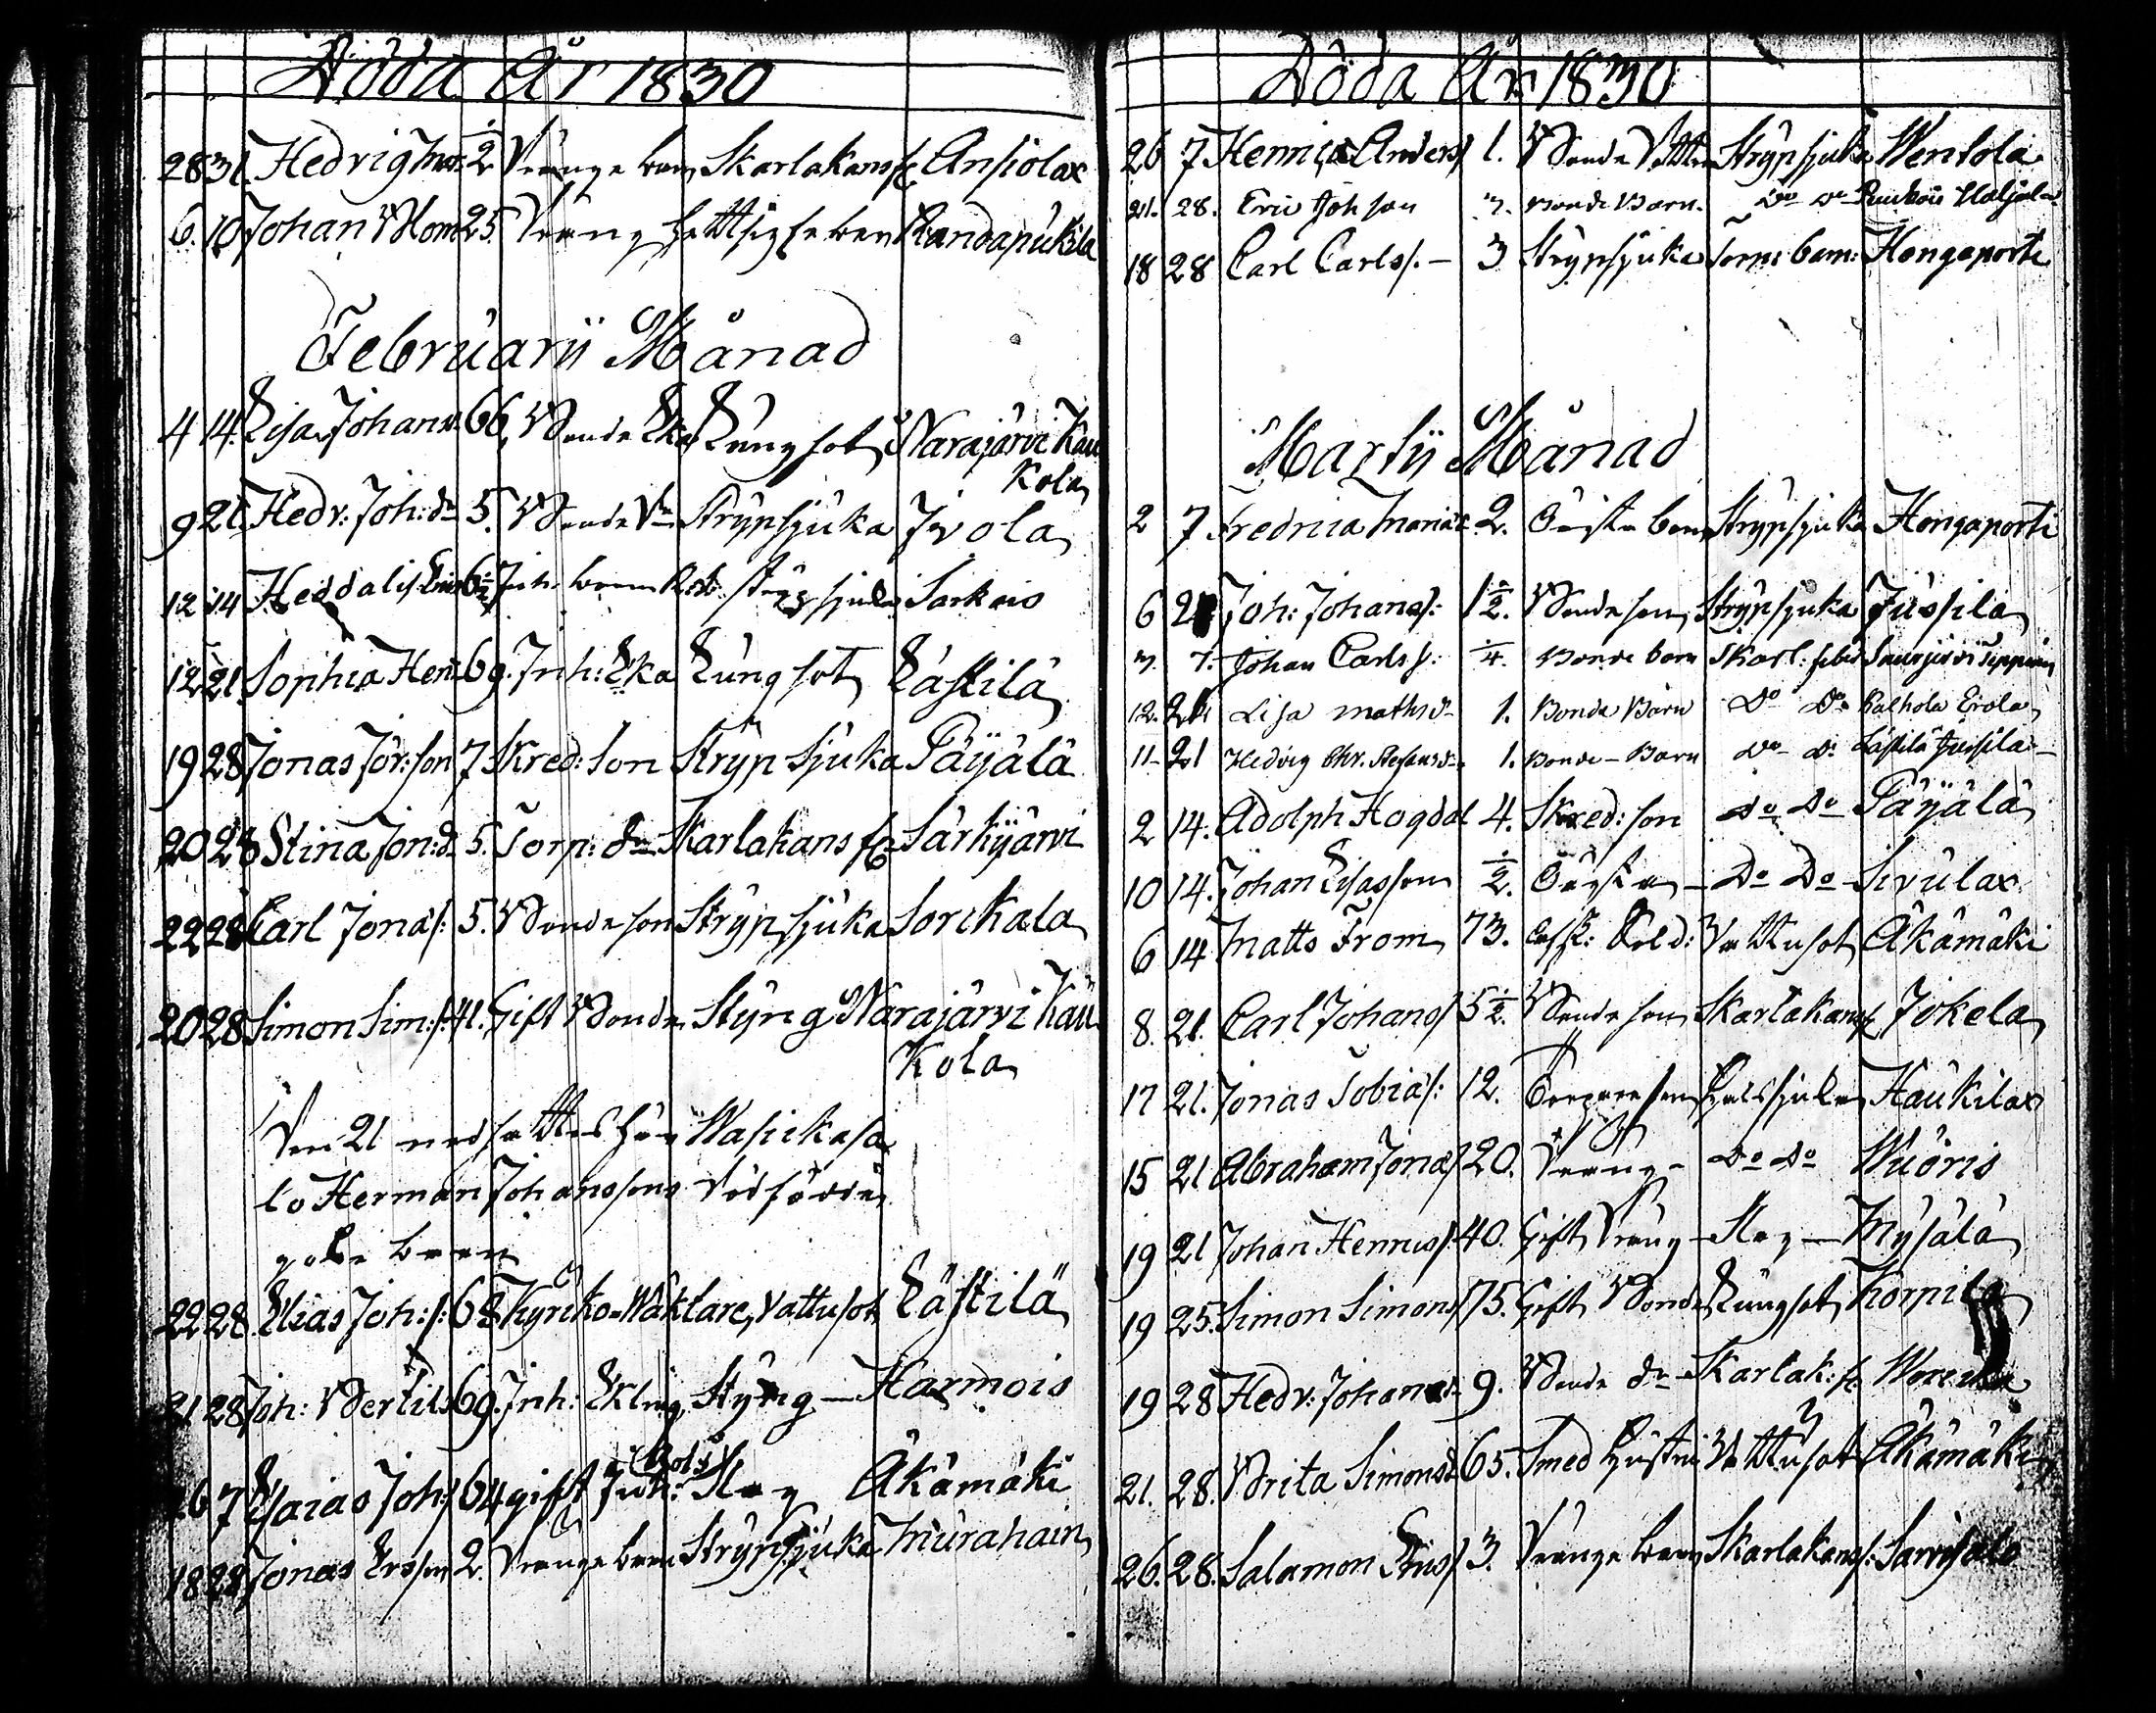 Döda År 1830
28 31. Hedvig 2 Drängebarn Skarlakansf. Ansiolax
6. 10 Johan Blom 25. Dräng Hettsig feber Randapukila
Februarii Månad
4 14. Lisa Johansd. 66. Bonde Eka Lungsot Narajärvi Kau
Kola
9 21. Hedv: Joh: dr 5. Bonde Dr Strypsjuka Ivola
12 14 Heddalis 6 Inh. barn Strypsjuka Sarkois
12 21. Sophia Hen 69. Inh: Eka Lungsot Lästilä
19 28 Jonas Jör: son 7 Skred: Son Strypsjuka Päyälä
20 28 Stina Jon: d. 5. Torp: dr Skarlakansf. Särkijärvi
22 28 Carl Jonas/: 5. Bondeson Strypsjuka Sorckala
20 28 Simon Sim:/: 41. Gift Bonde Styng Närajärvi Kau
Kola
Den 21 nedsattes Wasickasa
lo Herman Johanssons dödfödde
barn
22 28. Elias Joh:/: 68 Kyrcko-Wäktare, Vattusot Lästilä
21 28 Joh: Bertils 69. Inh: Ekling Styng — Harmois
26 7 Esaias Joh:/ 64 gift Inh: Slag Äkämäki
18 28 Jonas Ersson 2. Drängebarn Strypsjuka Murahain
Döda År 1830
26 7 Henric Anders/ 1. Bonde Strypsjuka Wentola
21. 28. Eric Joh son 7. Bonde Barn. Do Do
18 28 Carl Carls/. — 3 Strypsjuka Torp: barn: Hongaporti
Martii Månad
2 7 Fredrica Maria 2. barn Strypsjuka Hongaporti
6 21 Joh: Johans/: 1½. Bondeson Strypsjuka Jussila
3. 7. Johan Carls/: ¼. Bonde barn Skarl: feber
12. 21 Lisa Mathsd. 1. Bonde Barn Do Do Palhola Erola
11 21 Hedvig Chr. Stefansd. 1. Bonde-Barn Do Do Lästilä Jussila
2 14. Adolph Hogdal 4. Skred: son Do Do Päyälä
10 14. Johan Esasson ½. — Do Do — Sivulax
6 14 Matts From 73. Afsk: Sold: Vattusot Äkämäki
8. 21. Carl Johans/ 5½. Bondeson Skarlakansf Jokela
17 21. Jonas Tobias/: 12. Torpareson Halssjuka Haukilax
15 21 Abraham Jonas/ 20. Dräng — Do Do Wuoris
19 21 Johan Henrics/ 40. Gift Dräng — Slag — Mysälä
19 25. Simon Simons/ 75. Gift Bonde Lungsot Korpila
19 28 Hedv: Johansd. 9. Bonde dr Skarlak: f.
21. 28. Brita Simonsd 65. Smed Hustru Vattusot Äkämäki
26. 28. Salamon 3. Drängebarn Skarlakansf: Sarvisalo